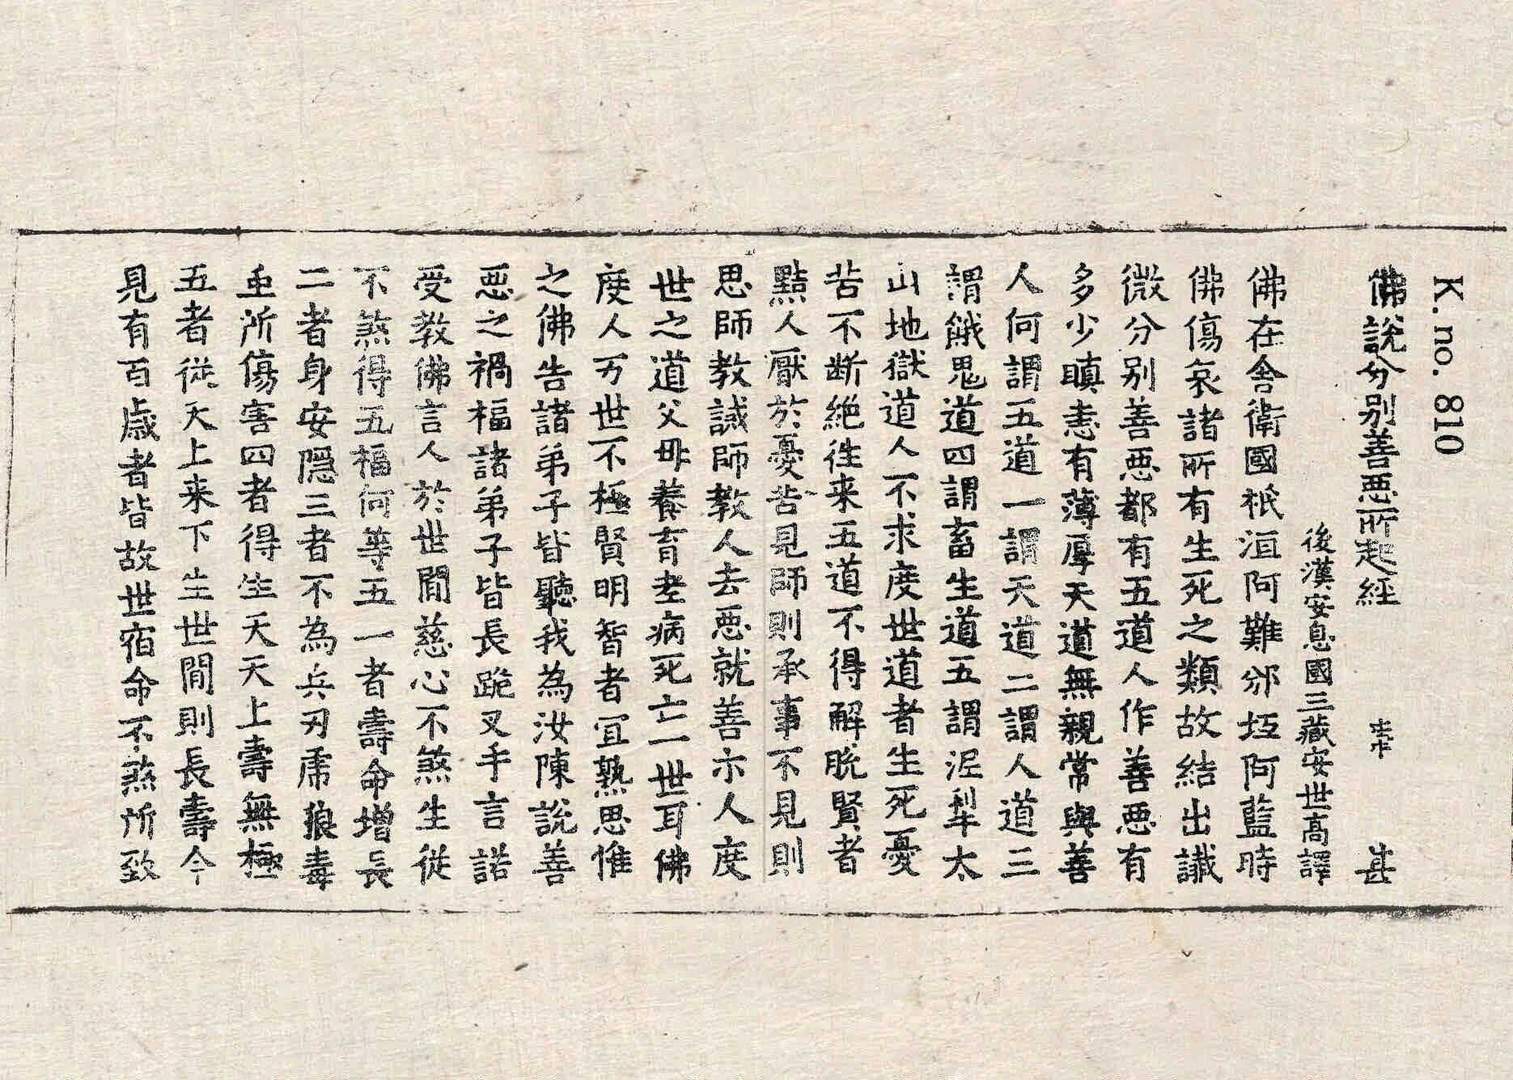 K. no. 810
佛說分別善惡所起經 甚
後漢安息國三藏安世高譯
佛在舍衛國祇洹阿難邠坻阿藍時
佛傷哀諸所有生死之類故結出讖
微分別善惡都有五道人作善惡有
多少瞋恚有薄厚天道無親常與善
人何謂五道一謂天道二謂人道三
謂餓鬼道四謂畜生道五謂泥犁太
山地獄道人不求度世道者生死憂
苦不斷絶往来五道不得解脫賢者
黠人厭於憂苦見師則承事不見則
思師教誡師教人去惡就善示人度
世之道父母養育老病死亡一世耳佛
度人万世不極賢明智者冝熟思惟
之佛告諸弟子皆聽我為汝陳說善
惡之禍福諸弟子皆長跪叉手言諾
受教佛言人於世間慈心不煞生從
不煞得五福何等五一者壽命增長
二者身安隱三者不為兵刃虎狼毒
虫所傷害四者得生天天上壽無極
五者從天上来下生世間則長壽今
見有百歲者皆故世宿命不煞所致